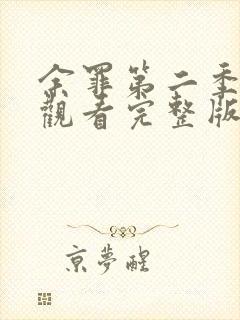 余罪第二季
觀看完整版
京夢醒